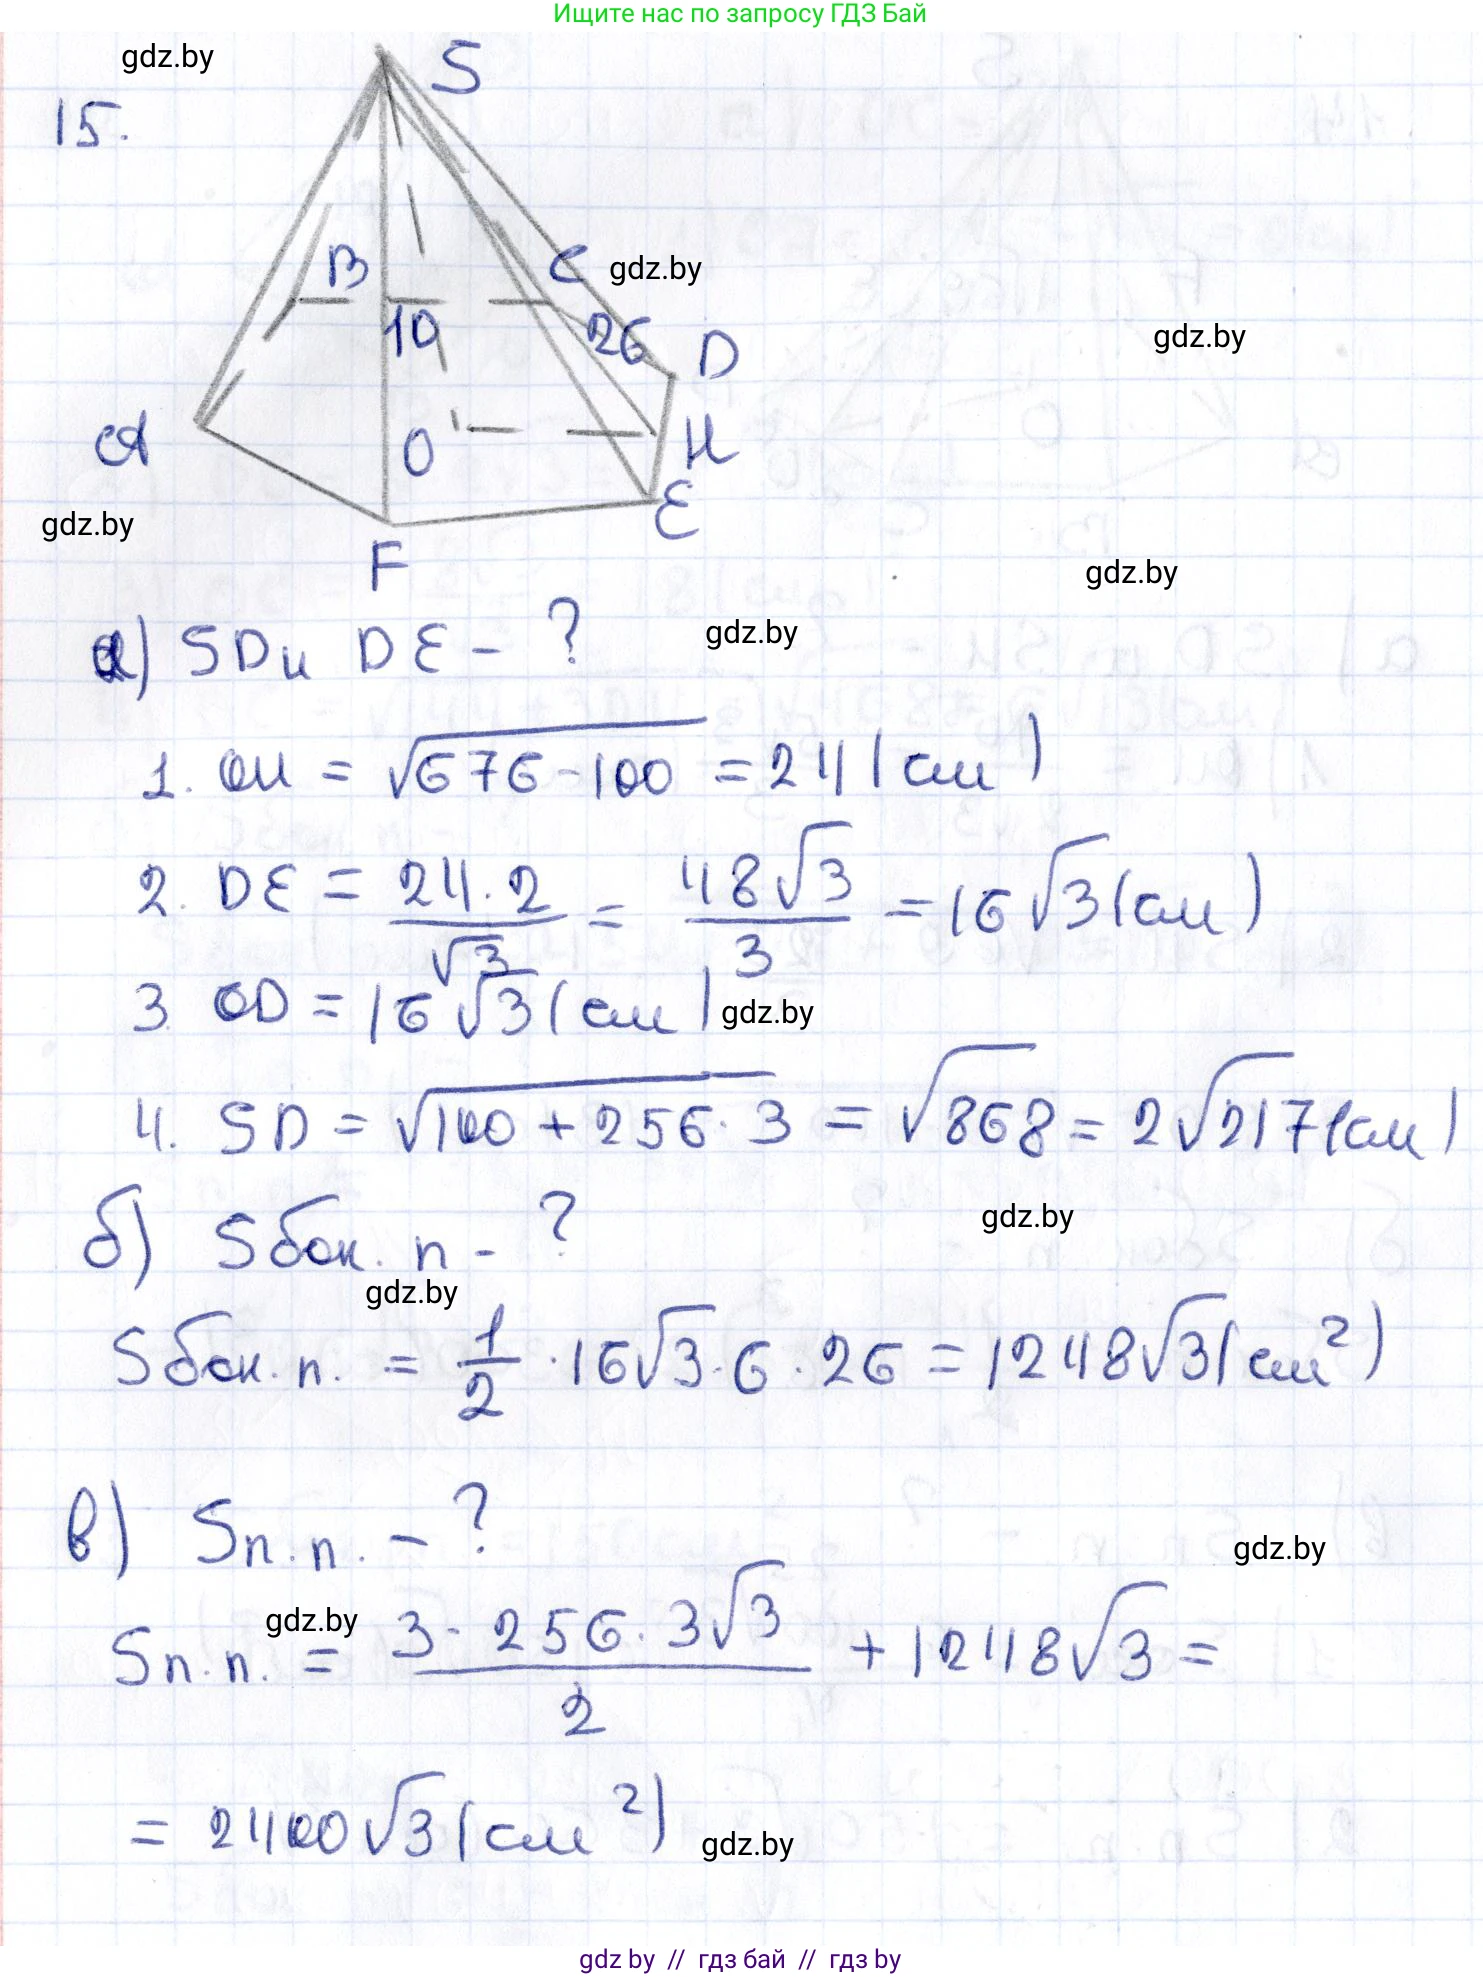 Ищите нас по запросу ГДЗ Бай
gdz.by
S
15.
B
C
gdz.by
10
26
D
gdz.by
A
O
H
E
gdz.by
F
gdz.by
а) SD и DE - ?
gdz.by
1. OH = √676-100 = 24 (см)
2. DE = 24·2/√3 = 48√3/3 = 16√3 (см)
3. OD = 16√3 (см)
gdz.by
4. SD = √100 + 256·3 = √868 = 2√217 (см)
б) Sбок. п - ?
gdz.by
gdz.by
Sбок.п. = 1/2 ·16√3·6·26 = 1248√3 (см²)
в) Sп.п. - ?
gdz.by
gdz.by
Sп.п. = 3·256·3√3/2 + 1248√3 =
= 2400√3 (см²)
gdz.by
gdz by // гдз бай // гдз by